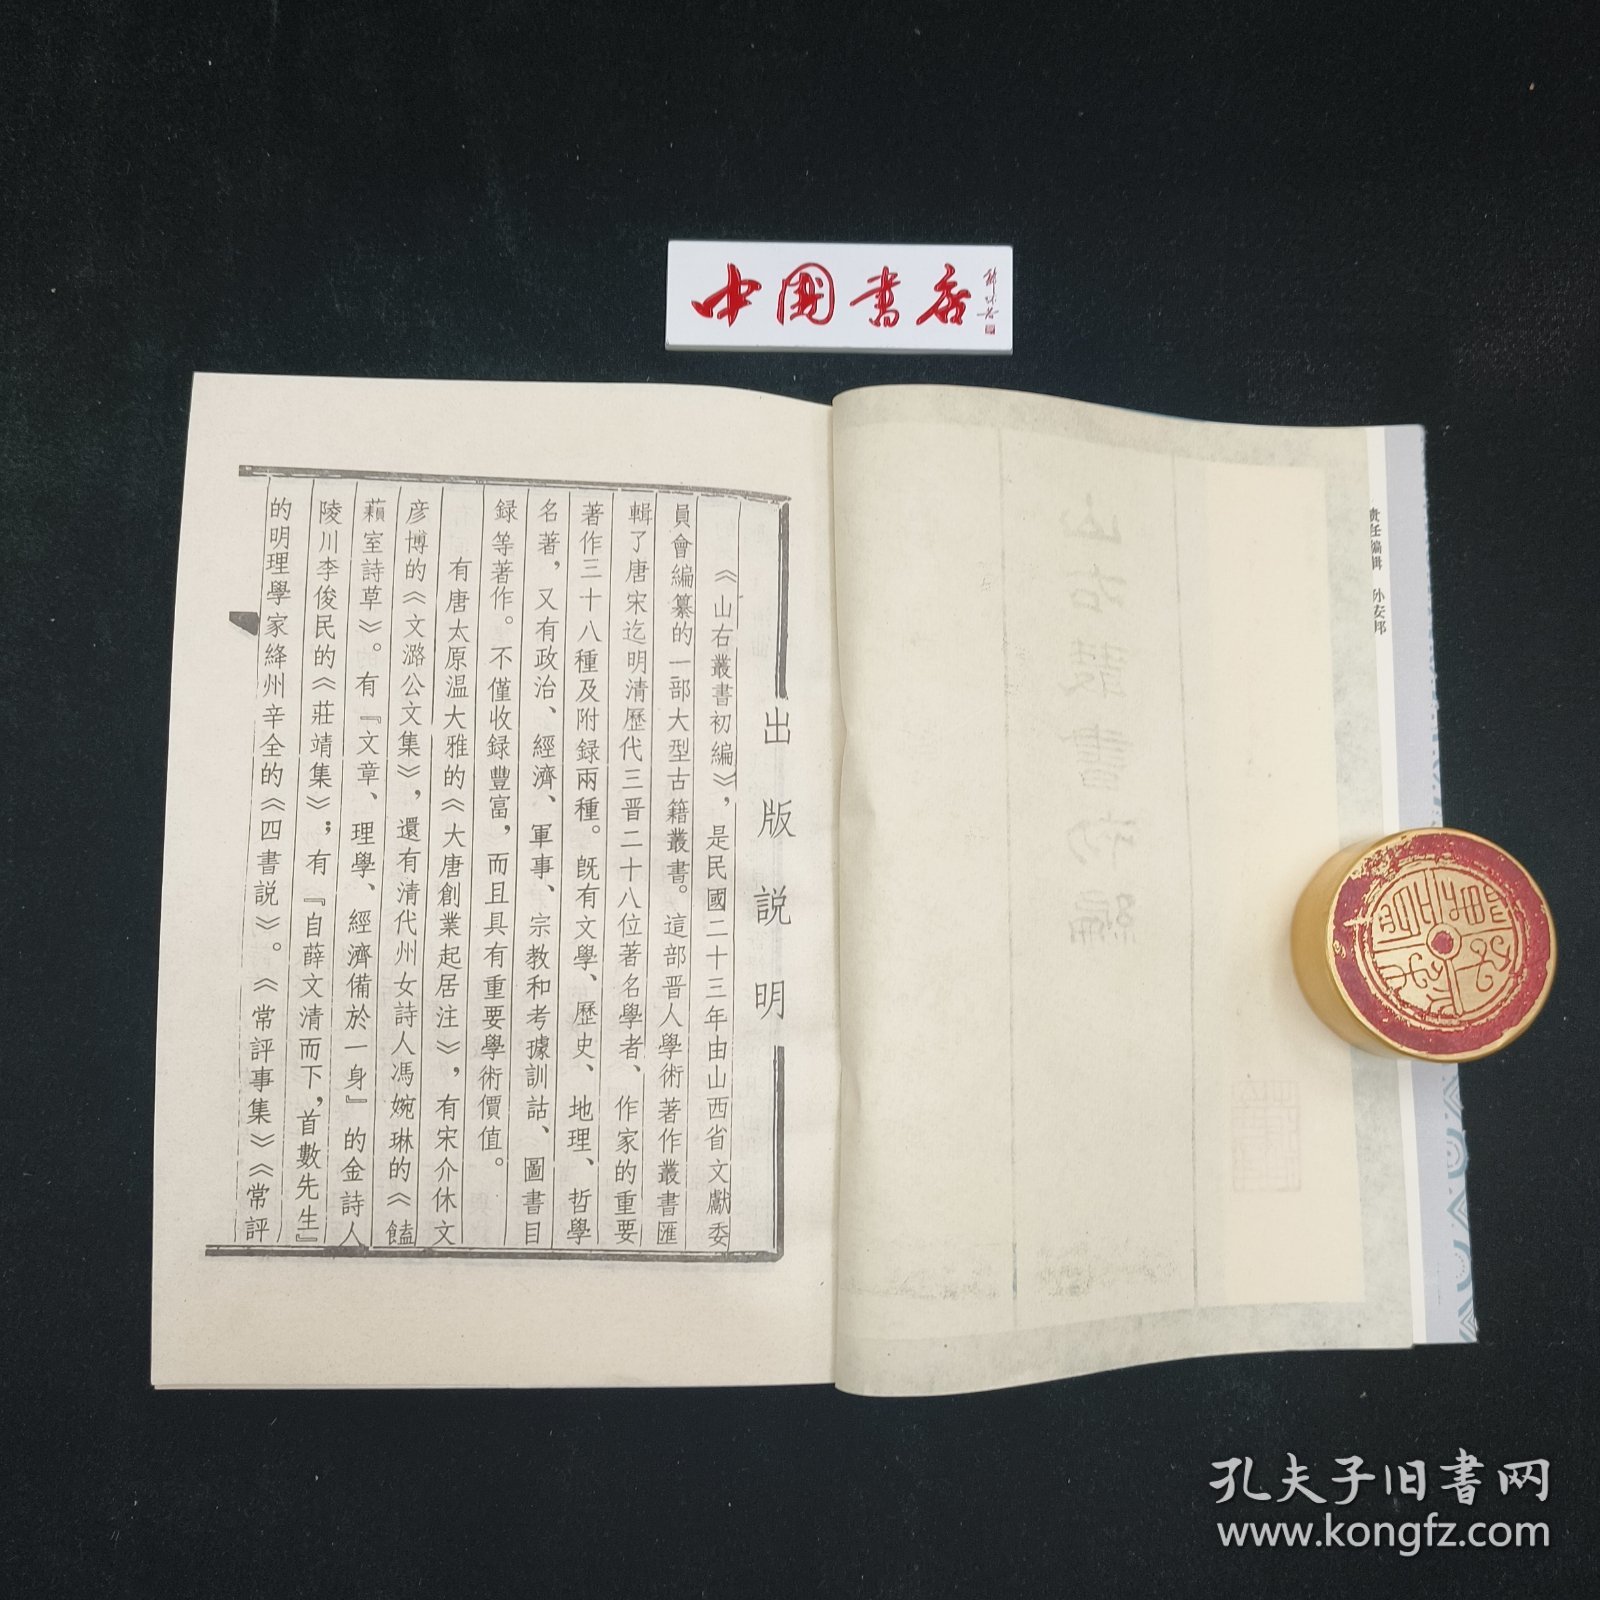 中國書店
責任編輯 孙安邦
山右叢書初編
出版説明
《山右叢書初編》,是民國二十三年由山西省文獻委
員會編纂的一部大型古籍叢書。這部晋人學術著作叢書匯
輯了唐宋迄明清歷代三晋二十八位著名學者、作家的重要
著作三十八種及附録兩種。既有文學、歷史、地理、哲學
名著,又有政治、經濟、軍事、宗教和考據訓詁、圖書目
録等著作。不僅收録豐富,而且具有重要學術價值。
有唐太原温大雅的《大唐創業起居注》,有宋介休文
彦博的《文潞公文集》,還有清代州女詩人馮婉琳的《饁
藾室詩草》。有『文章、理學、經濟備於一身』的金詩人
陵川李俊民的《莊靖集》;有『自薛文清而下,首數先生』
的明理學家絳州辛全的《四書説》。《常評事集》《常評
孔夫子旧書网
www.kongfz.com